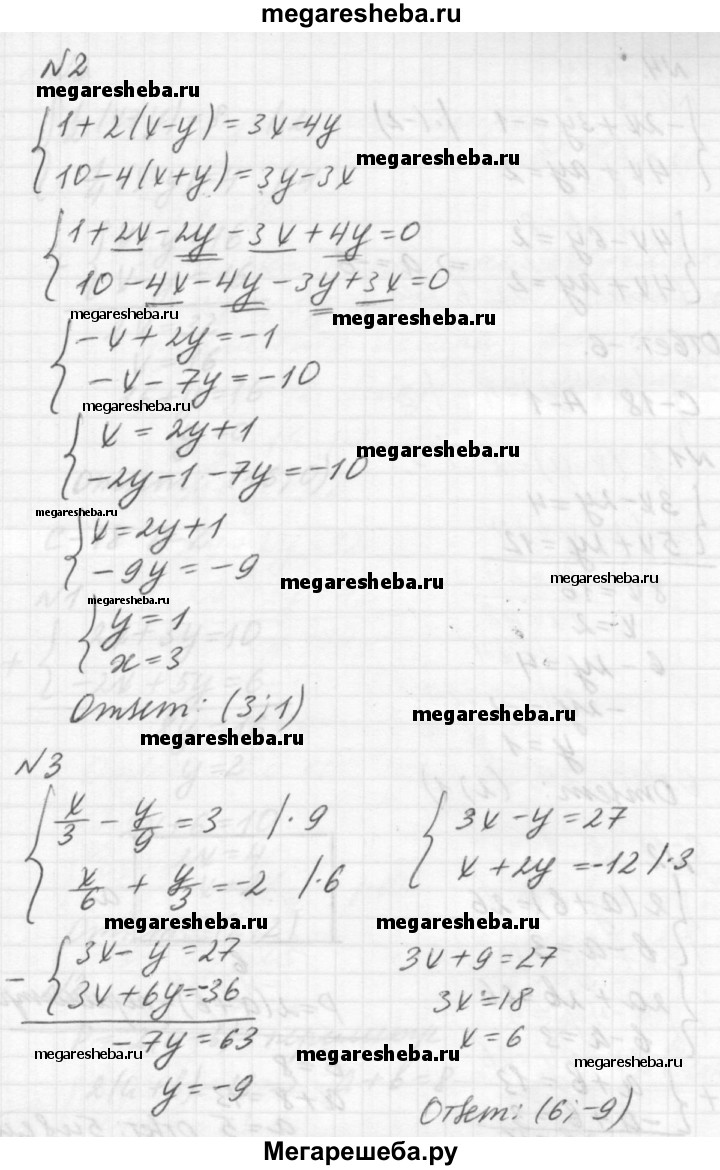 megaresheba.ru
№2
megaresheba.ru
{1+2(x-y)=3x-4y
10-4(x+y)=3y-3x
megaresheba.ru
{1+2x-2y-3x+4y=0
10-4x-4y-3y+3x=0
megaresheba.ru
megaresheba.ru
{-x+2y=-1
-x-7y=-10
megaresheba.ru
{x=2y+1
-2y-1-7y=-10
megaresheba.ru
megaresheba.ru
{x=2y+1
-9y=-9
megaresheba.ru
megaresheba.ru
megaresheba.ru
{y=1
x=3
Ответ: (3;1)
megaresheba.ru
megaresheba.ru
№3
{x/3 - y/9 = 3 /·9
x/6 + y/3 = -2 /·6
{3x-y=27
x+2y=-12 /·3
megaresheba.ru
megaresheba.ru
-{3x-y=27
3x+6y=-36
-7y=63
y=-9
3x+9=27
3x=18
x=6
megaresheba.ru
megaresheba.ru
megaresheba.ru
Ответ: (6;-9)
Мегарешеба.ру